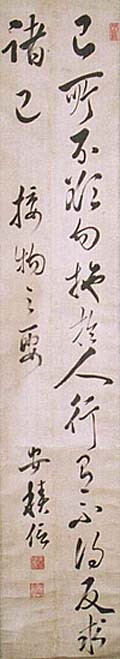 己所不欲勿施於人行有不得反求
諸己
接物之要
安積信